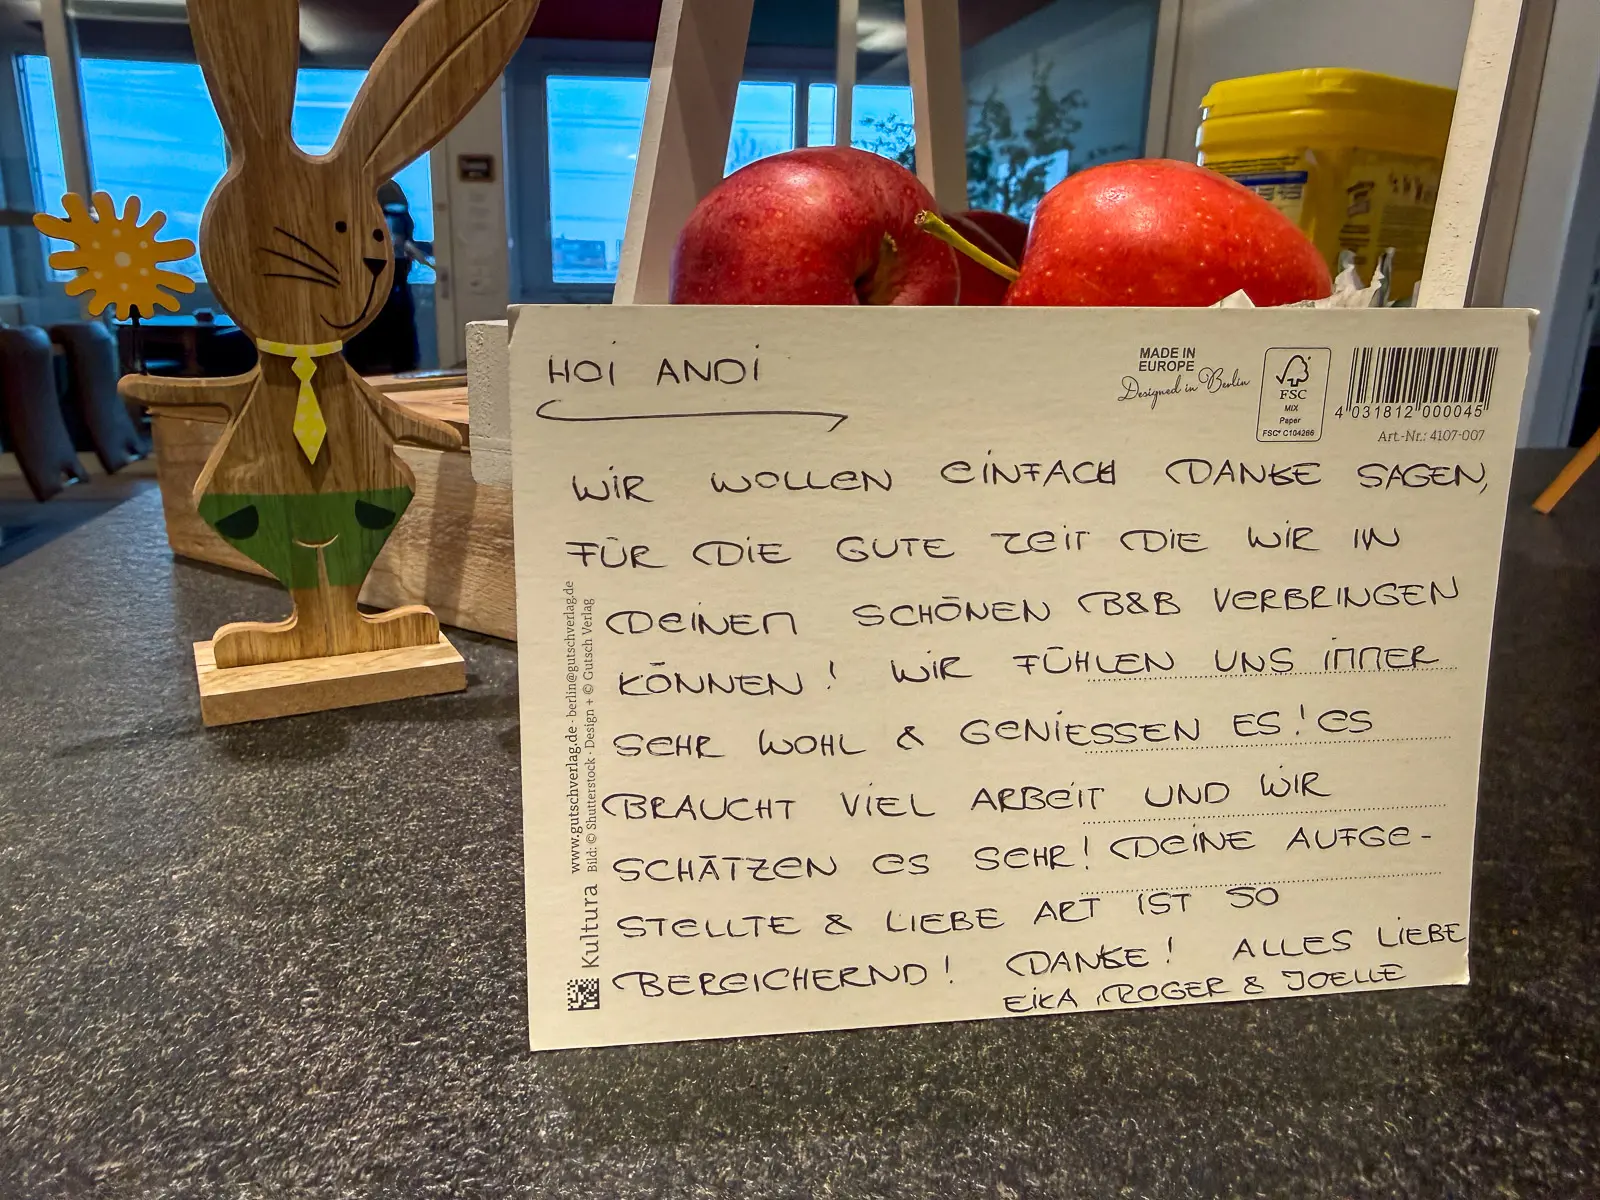 HOI ANDI
MADE IN
EUROPE
Designed in Berlin
FSC
MIX
Paper
FSC® C104266
4 031812 000045
Art.-Nr.: 4107-007
WIR WOLLEN EINFACH DANKE SAGEN,
FÜR DIE GUTE ZEIT DIE WIR IN
DEINEM SCHÖNEN B&B VERBRINGEN
KÖNNEN! WIR FÜHLEN UNS IMMER
SEHR WOHL & GENIESSEN ES! ES
BRAUCHT VIEL ARBEIT UND WIR
SCHÄTZEN ES SEHR! DEINE AUFGE-
STELLTE & LIEBE ART IST SO
BEREICHERND! DANKE! ALLES LIEBE
EIKA, ROGER & JOELLE
Kultura www.gutschverlag.de · berlin@gutschverlag.de
Bild: © Shutterstock · Design + © Gutsch Verlag